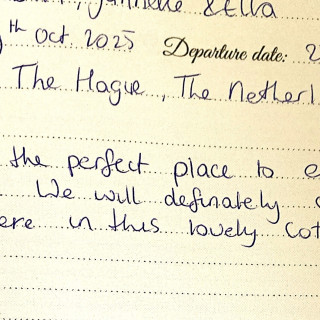 & Ella
th Oct 2025 Departure date: 2
The Hague, The Netherl
the perfect place to e
We will definately
ere in this lovely Cot